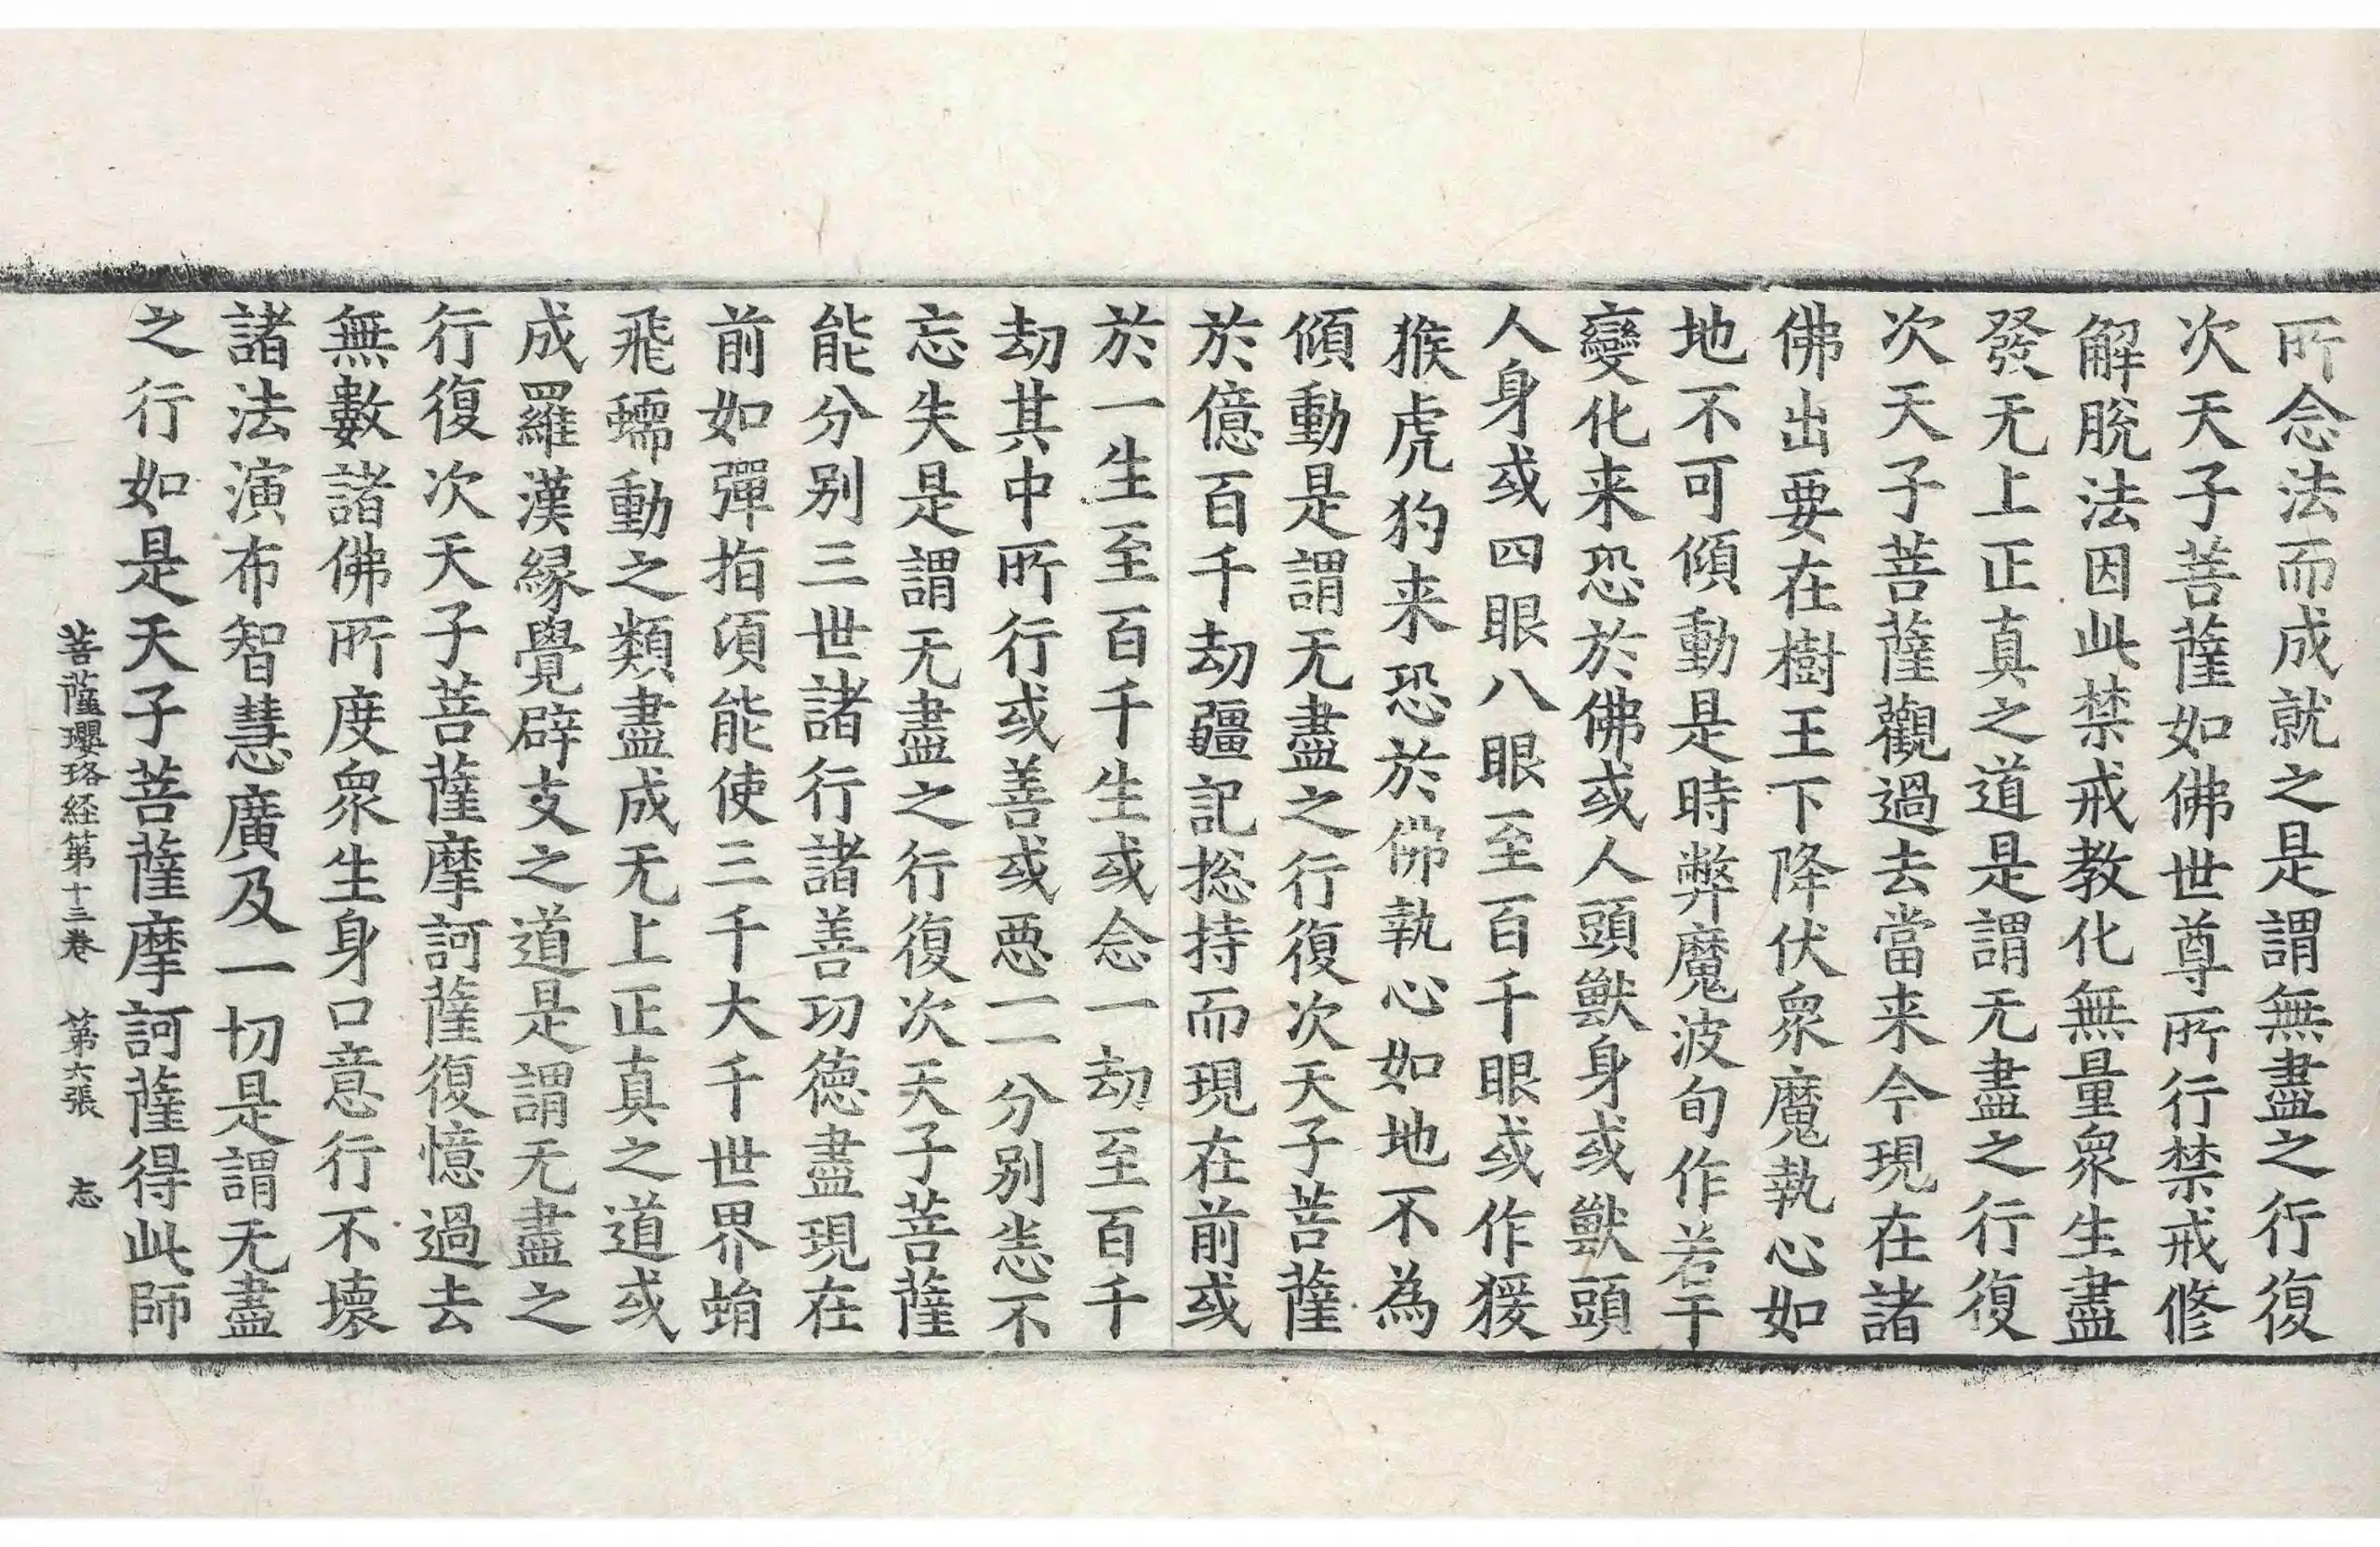 所念法而成就之是謂無盡之行復
次天子菩薩如佛世尊所行禁戒修
解脫法因此禁戒教化無量衆生盡
發无上正真之道是謂无盡之行復
次天子菩薩觀過去當来今現在諸
佛出要在樹王下降伏衆魔執心如
地不可傾動是時弊魔波旬作若干
變化来恐於佛或人頭獸身或獸頭
人身或四眼八眼至百千眼或作猨
猴虎狗来恐於佛執心如地不為
傾動是謂无盡之行復次天子菩薩
於億百千劫疆記揔持而現在前或
於一生至百千生或念一劫至百千
劫其中所行或善或惡一一分别恙不
忘失是謂无盡之行復次天子菩薩
能分别三世諸行諸善功德盡現在
前如彈指須能使三千大千世界蛕
飛蠕動之類盡成无上正真之道或
成羅漢緣覺辟支之道是謂无盡之
行復次天子菩薩摩訶薩復憶過去
無數諸佛所度衆生身口意行不壞
諸法演布智慧廣及一切是謂无盡
之行如是天子菩薩摩訶薩得此師
菩薩瓔珞経第十三卷 第六張 志